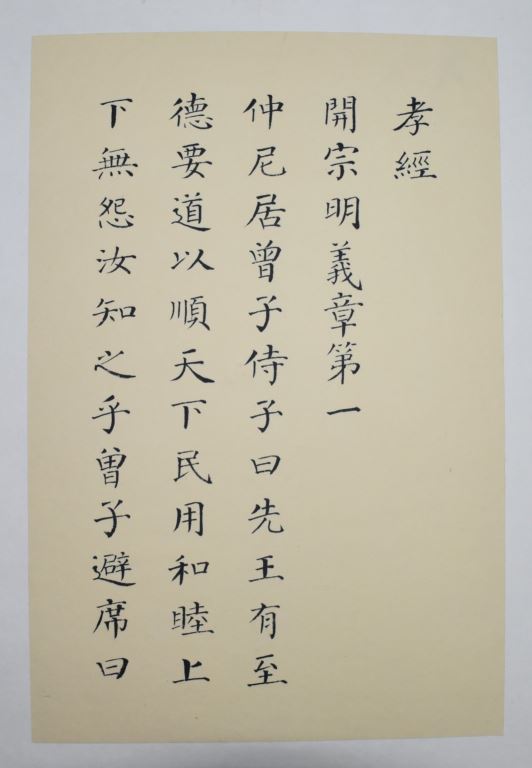 孝經
開宗明義章第一
仲尼居曾子侍子曰先王有至
德要道以順天下民用和睦上
下無怨汝知之乎曾子避席曰